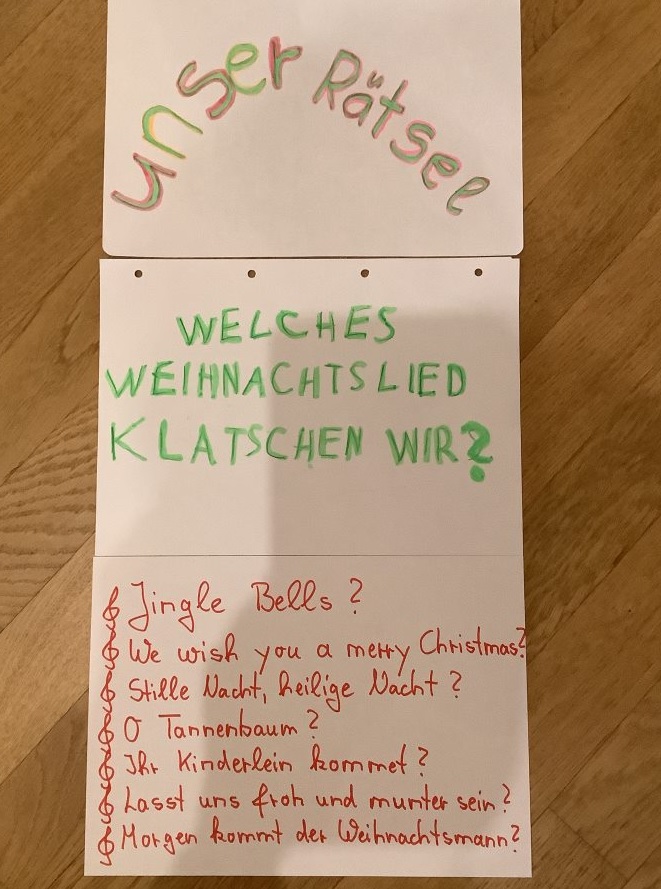 unser Rätsel
WELCHES
WEIHNACHTSLIED
KLATSCHEN WIR?
Jingle Bells?
We wish you a merry Christmas?
Stille Nacht, heilige Nacht?
O Tannenbaum?
Ihr Kinderlein kommet?
Lasst uns froh und munter sein?
Morgen kommt der Weihnachtsmann?